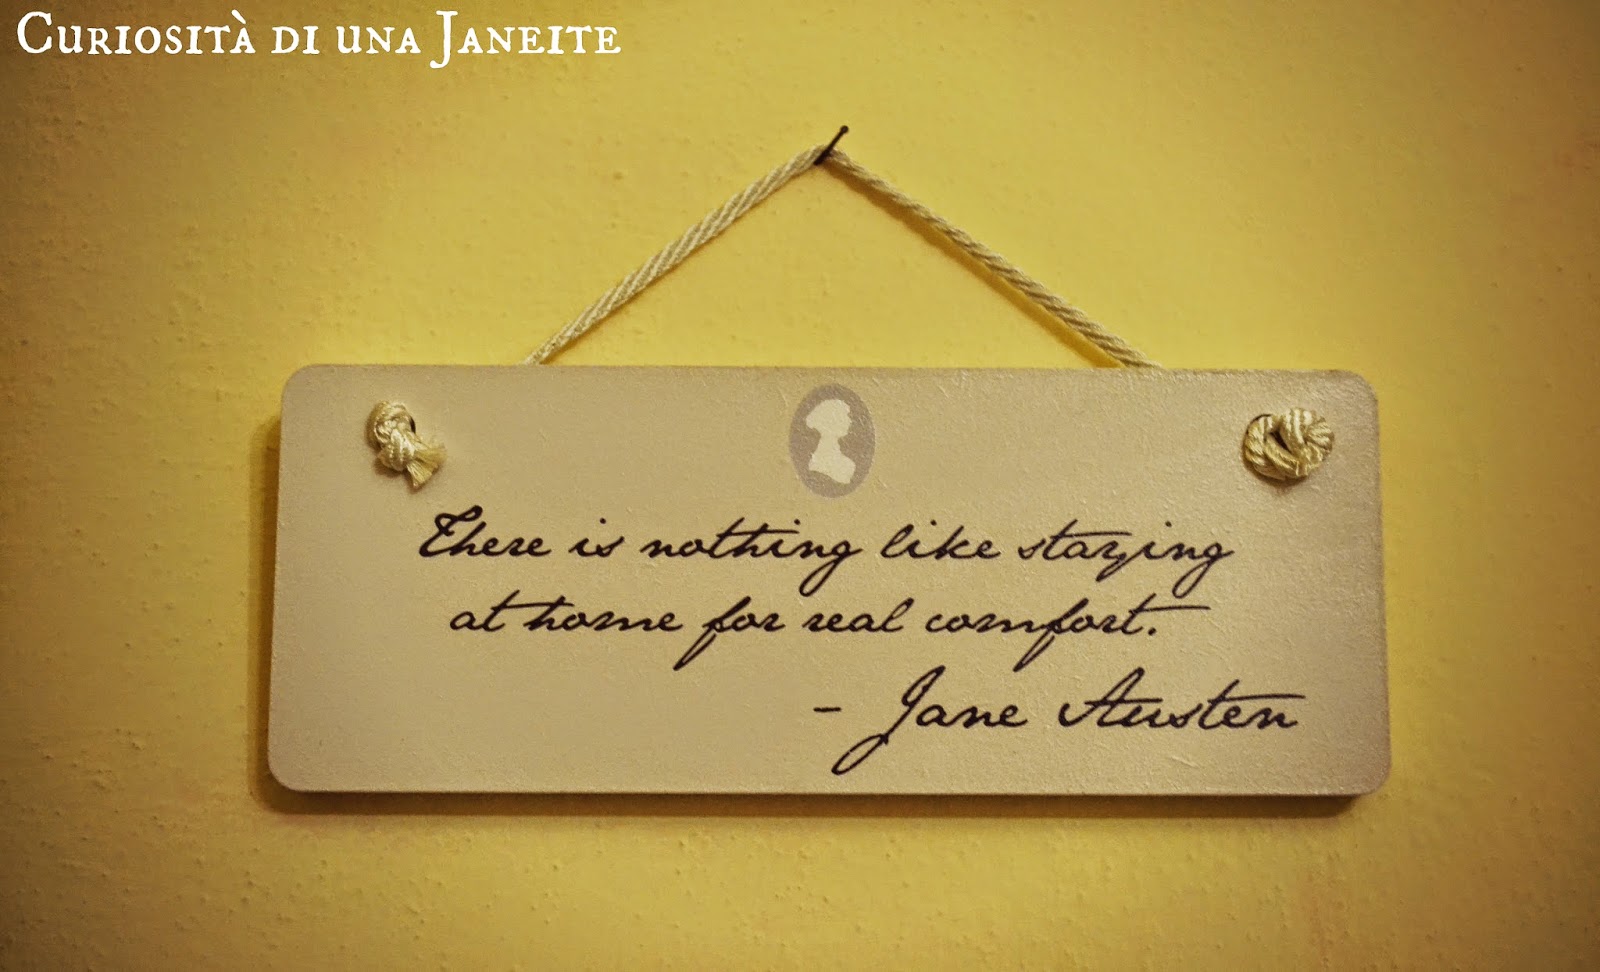 Curiosità di una Janeite
There is nothing like staying
at home for real comfort.
- Jane Austen